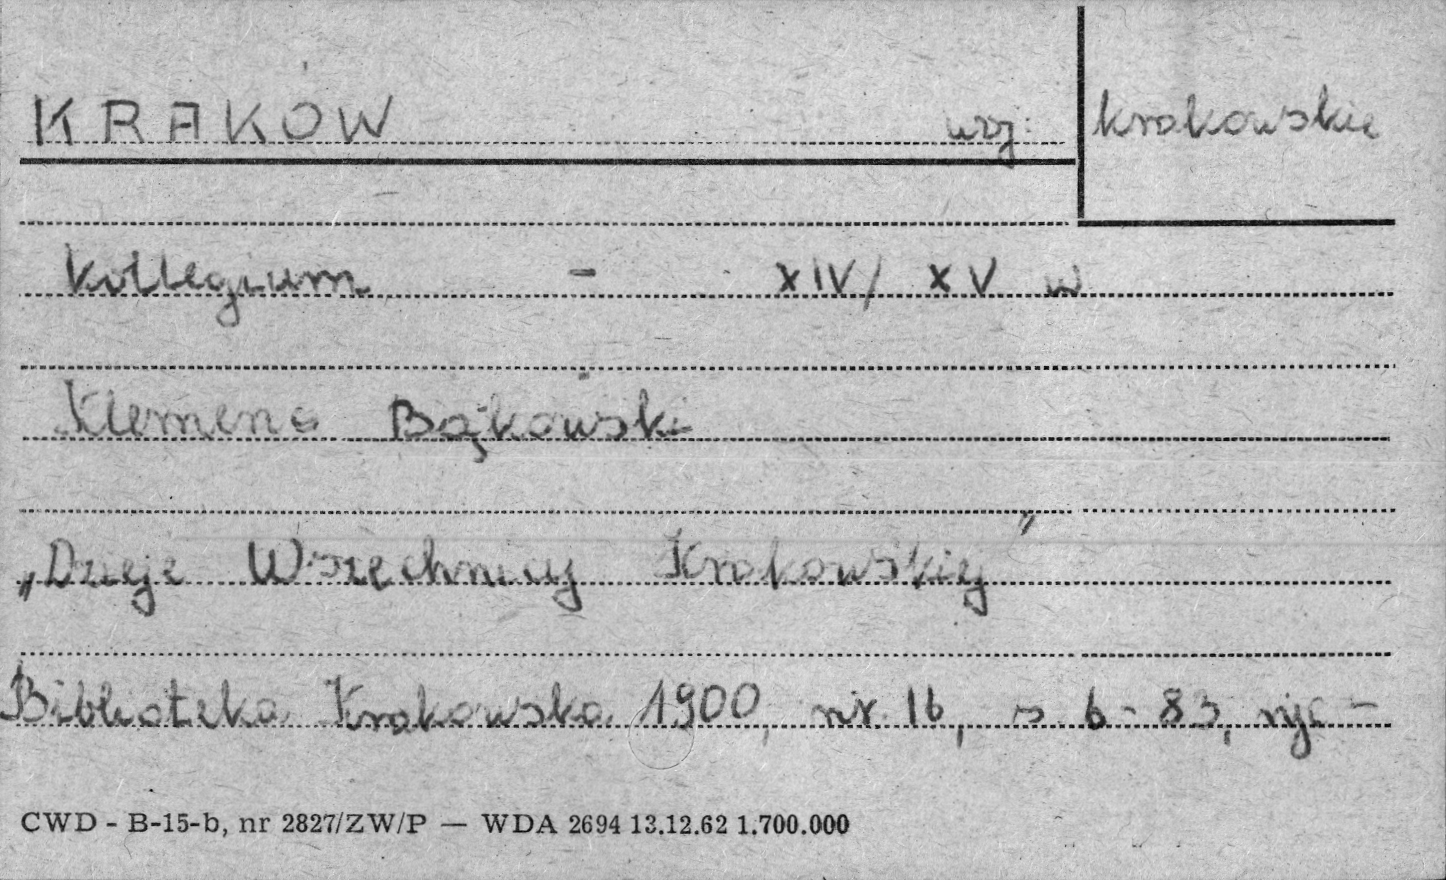 KRAKÓW woj. krakowskie
Kollegium - XIV/ XV w
Klemens Bąkowski
„Dzieje Wszechnicy Krakowskiej”
Biblioteka Krakowska 1900, nr. 16, s. 6-83, ryc -
CWD - B-15-b, nr 2827/ZW/P — WDA 2694 13.12.62 1.700.000